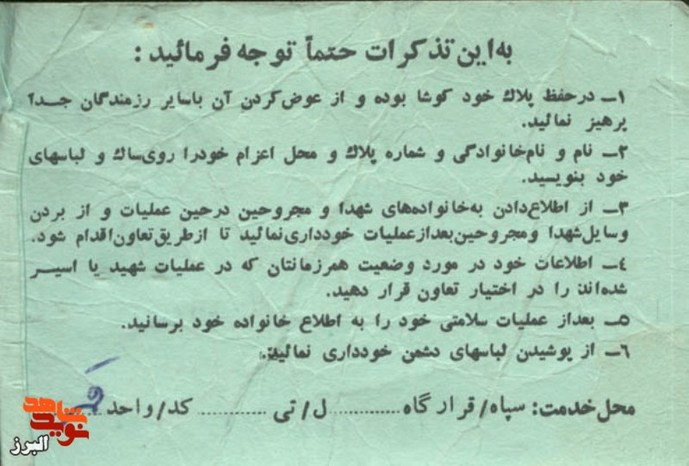 به این تذکرات حتماً توجه فرمائید :
۱ـ در حفظ پلاك خود کوشا بوده و از عوض‌کردن آن باسایر رزمندگان جداً
پرهیز نمائید.
۲ـ نام و نام‌خانوادگی و شماره پلاك و محل اعزام خودرا روی‌ساك و لباسهای
خود بنویسید.
۳ـ از اطلاع‌دادن به‌خانواده‌های شهدا و مجروحین درحین عملیات و از بردن
وسایل‌شهدا ومجروحین‌بعدازعملیات خودداری‌نمائید تا ازطریق‌تعاون‌اقدام شود.
۴ـ اطلاعات خود در مورد وضعیت همرزمانتان که در عملیات شهید یا اسیر
شده‌اند را در اختیار تعاون قرار دهید.
۵ـ بعداز عملیات سلامتی خود را به اطلاع خانواده خود برسانید.
۶ـ از پوشیدن لباسهای دشمن خودداری نمائید.
محل‌خدمت: سپاه/قرارگاه ............ل/تی ............ کد/واحد
نوید شاهد
البرز